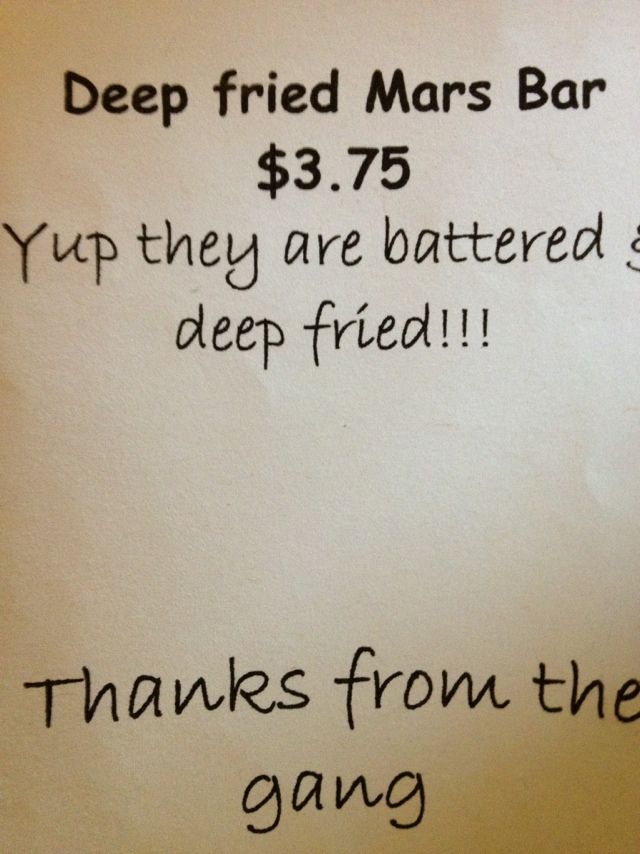 Deep fried Mars Bar
$3.75
Yup they are battered &
deep fried!!!
Thanks from the
gang